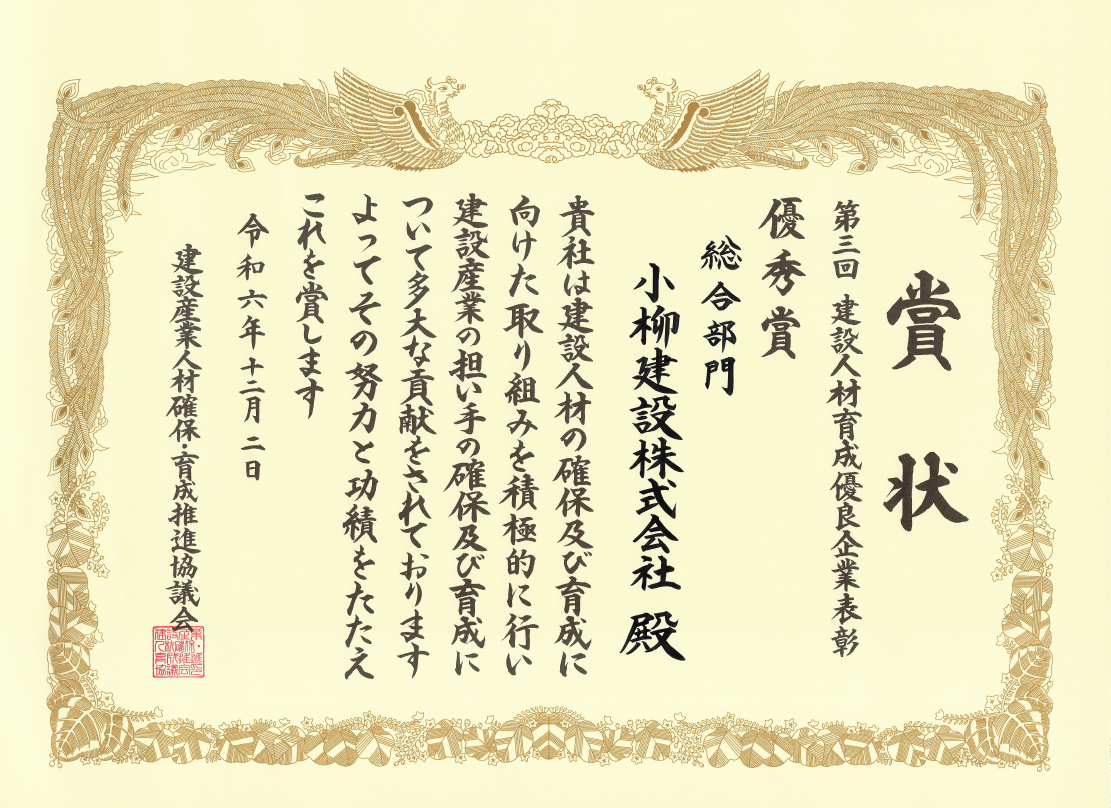 賞状
第三回 建設人材育成優良企業表彰
優秀賞
総合部門
小柳建設株式会社 殿
貴社は建設人材の確保及び育成に
向けた取り組みを積極的に行い
建設産業の担い手の確保及び育成に
ついて多大な貢献をされております
よってその努力と功績をたたえ
これを賞します
令和六年十二月二日
建設産業人材確保・育成推進協議会